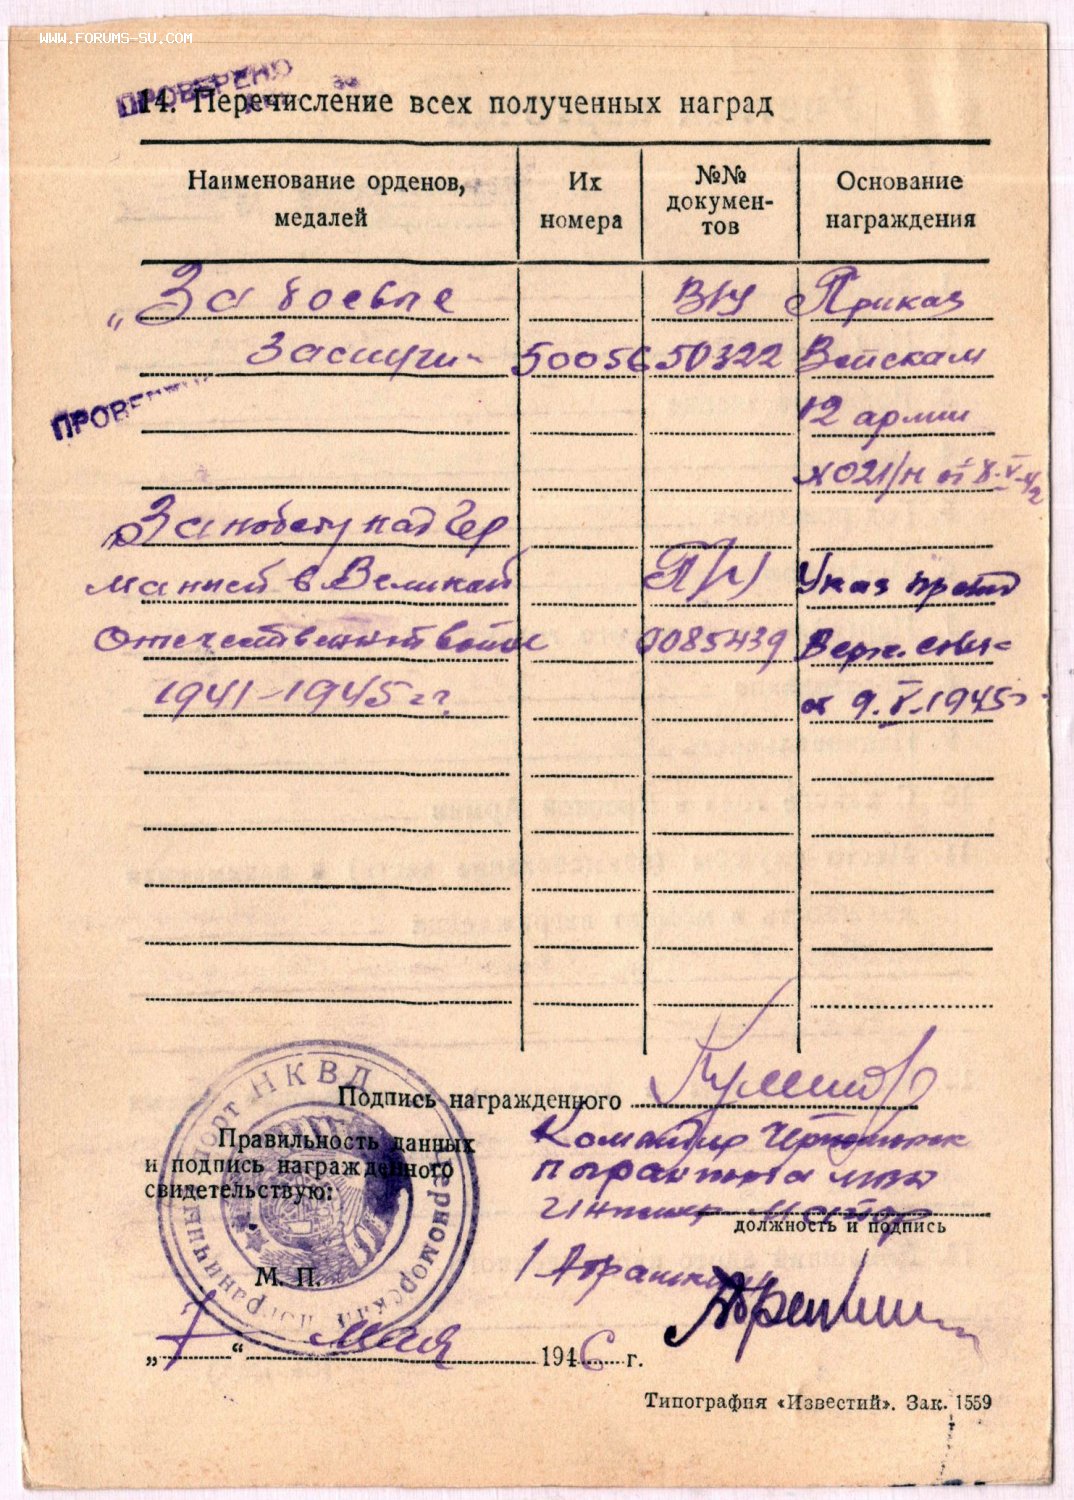 WWW.FORUMS-SU.COM
ПРОВЕРЕНО
14. Перечисление всех полученных наград
Наименование орденов, медалей
Их номера
№№ докумен-тов
Основание награждения
„За боевые В/Ч Приказ
Заслуги" 50056 50322 Войскам
ПРОВЕРЕНО
12 армии
№021/н от 8.V-42
„За победу над Гер
манией в Великой П/Ч Указ През
Отечественной войне 0085439 Верх. Совета
1941-1945 гг. от 9.V.1945г
Подпись награжденного
Правильность данных
и подпись награжденного
свидетельствую:
Командир Черноморск
погранотряда
Инженер майор
должность и подпись
НКВД
Черноморский пограничный
М. П.
/Абрашкин
„7“ мая 1946 г.
Типография «Известий». Зак. 1559